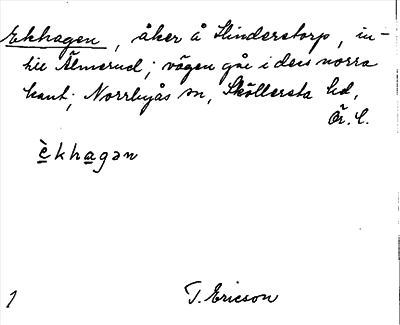 Ekhagen, åker å Slinderstorp, in-
till Älmerud; vägen går i dess norra
kant; Norrbyås sn, Sköllersta hd,
Ör. l.
èkhagən
1 T. Ericson